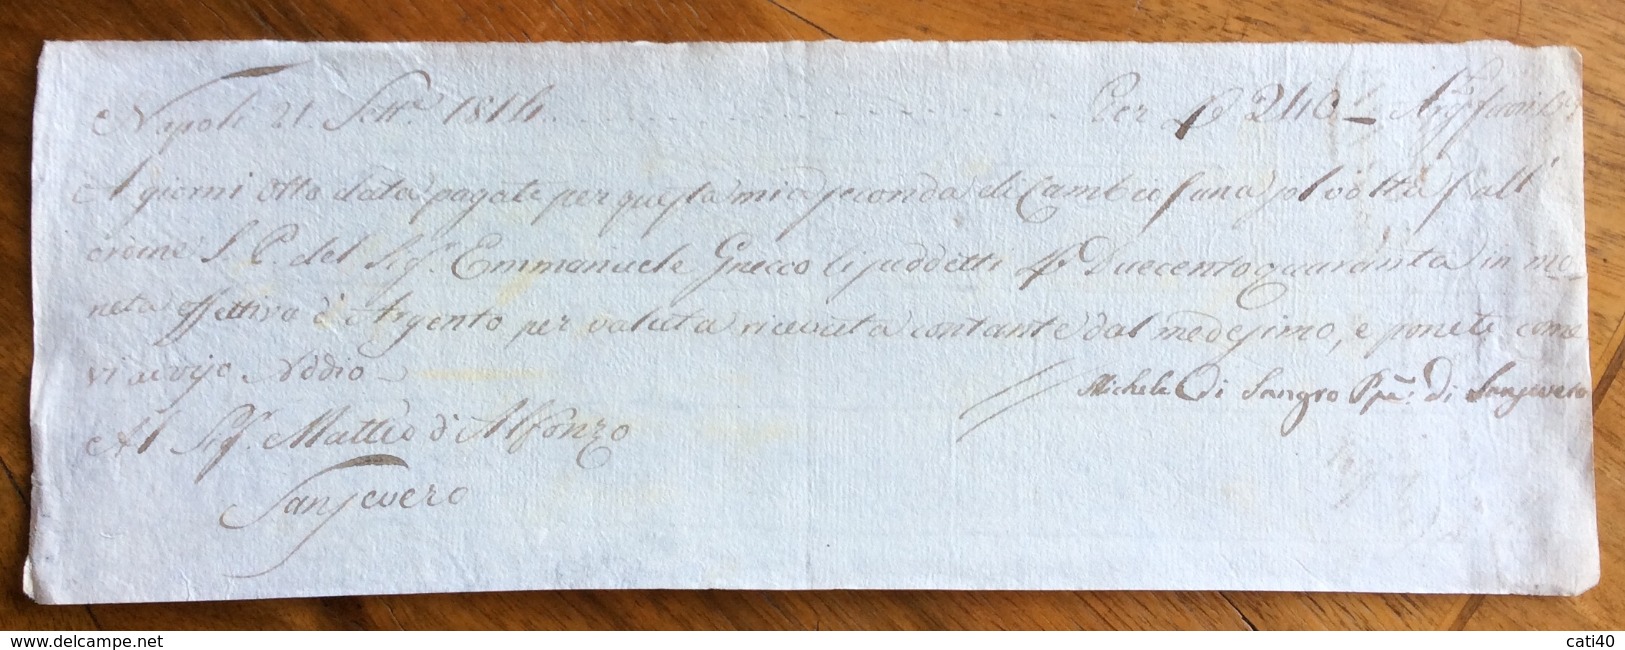 Napoli 21. Sett.e 1814. Per D 240 –
A giorni otto data pagate per questa mia seconda di Cambio funa sol volta f all'
ordine S. P. del Sig.r Emmanuele Grecco li suddetti D Duecentoquaranta in mo=
neta effettiva d'Argento per valuta ricevuta contante dal medesimo, e ponete come
vi avviso Addio
Michele di Sangro Ppe. di Sansevero
Al Sig.r Matteo d'Alfonzo
Sansevero
cati40